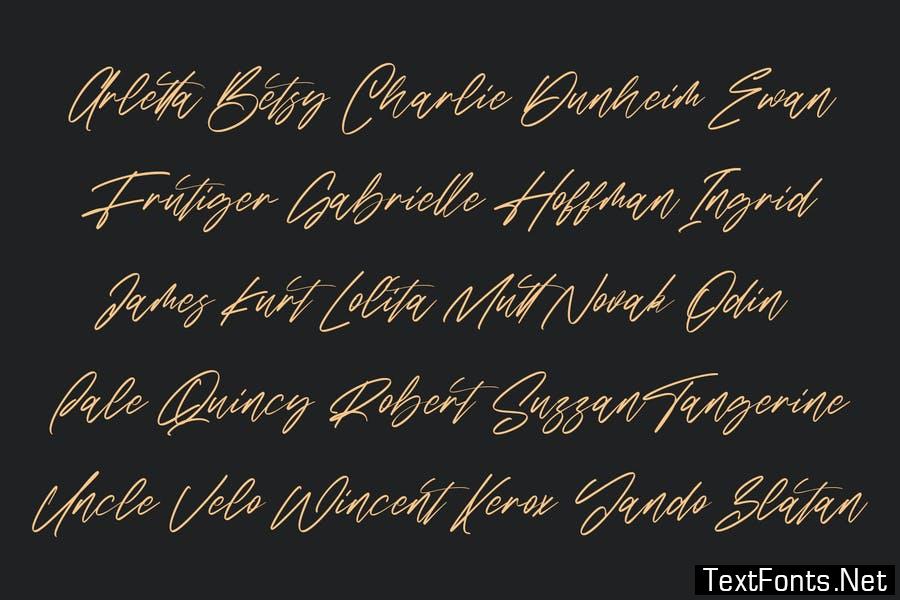 Arletta Betsy Charlie Dunheim Ewan
Frutiger Gabrielle Hoffman Ingrid
James Kurt Lolita Mutt Novak Odin
Pale Quincy Robert Suzzan Tangerine
Uncle Velo Wincent Xerox Yando Zlatan
TextFonts.Net